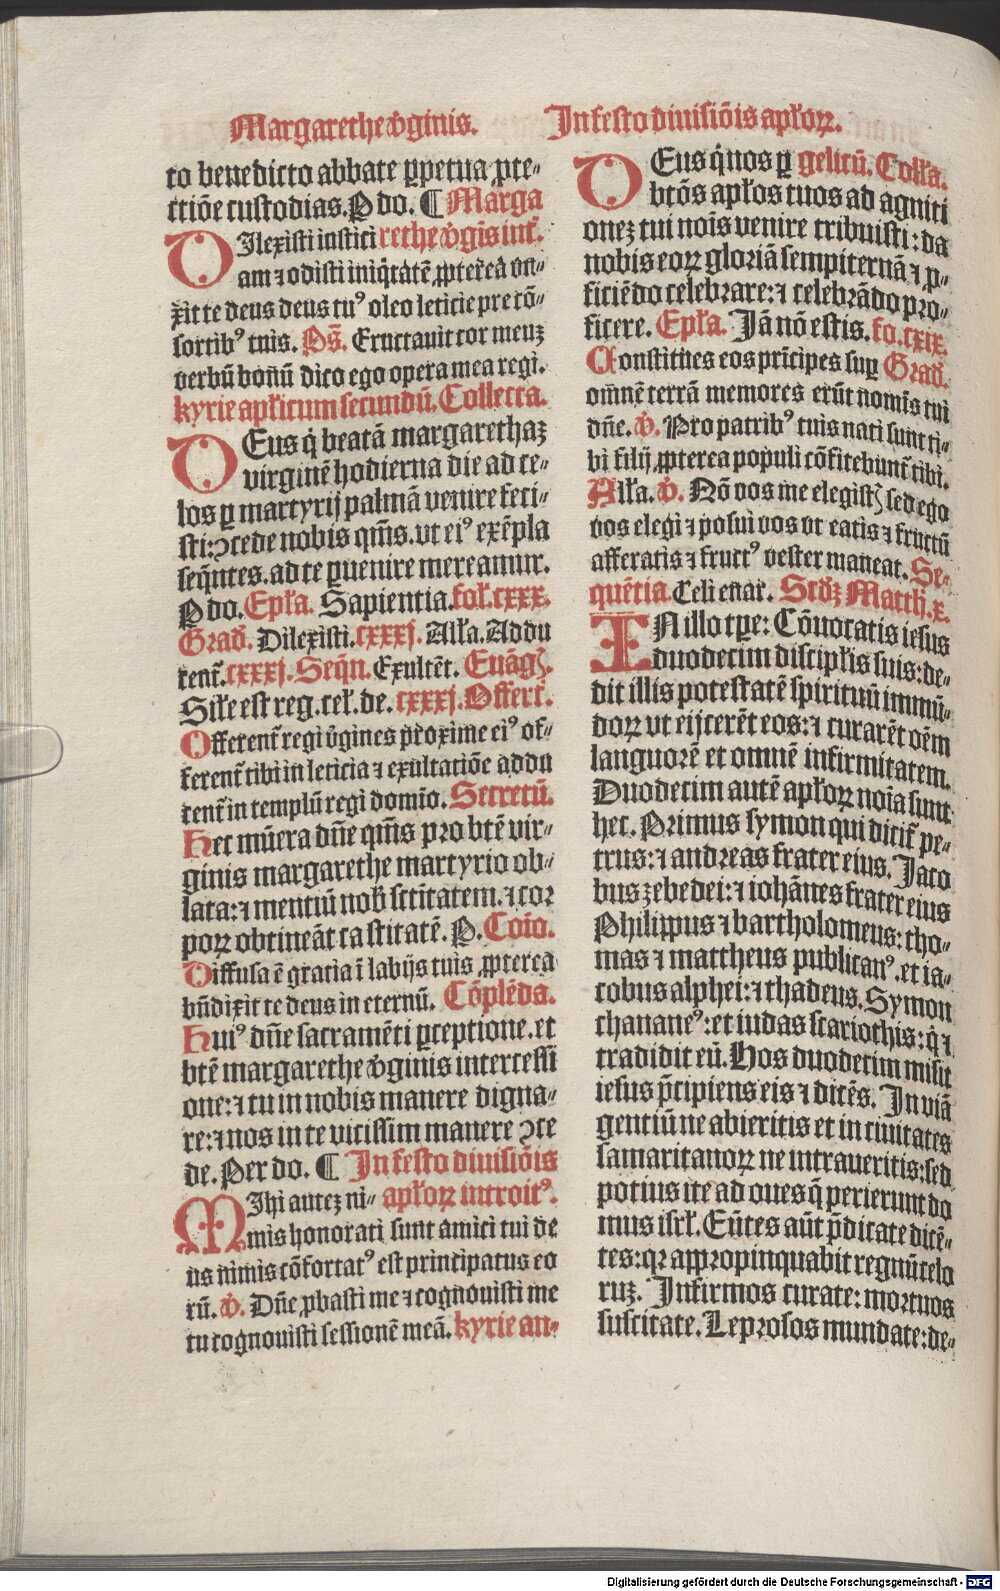 Margarethe v̓ginis. In festo diuisiōis apłoꝝ.
to benedicto abbate ꝑpetua ꝓte-
ctiōe custodias. P do. ¶ Marga
Dilexisti iustici rethe v̓gīs int͛.
am ⁊ odisti iniq̇tatē ꝓpterea vn-
xit te deus deus tuꝰ oleo leticie pre cō-
sortibꝰ tuis. Ps̄. Eructauit cor meuꝫ
verbū bonū dico ego opera mea regi.
kyrie apłicum secundū. Collecta.
DEus q̇ beatā margarethaꝫ
virginē hodierna die ad ce-
los ꝑ martyrij palmā venire feci-
sti: ↄcede nobis qm̄s. vt eiꝰ exēpla
seq̄ntes. ad te ꝑuenire mereamur.
P do. Epła. Sapientia. fol. cxxx.
Grad̓. Dilexisti. cxxxj. Alła. Addu
cent͛. cxxxj. Seq̄n. Exultēt. Euāgꝭ.
Siłe est reg. cel. de. cxxxj. Offert͛.
Offerent͛ regi v̓gines ꝓxime eiꝰ of-
ferent͛ tibi in leticia ⁊ exultatiōe addu
cent͛ in templū regi domīo. Secretū.
Hec mūera dn̄e qm̄s pro btē vir-
ginis margarethe martyrio ob-
lata: ⁊ mentiū nob̓ sctītatem. ⁊ cor
poꝝ obtineāt castitatē. P. Coīo.
Diffusa ē gratia ī labijs tuis ꝓpterea
bn̄dixit te deus in eternū. Cōplēda.
Huiꝰ dn̄e sacramēti ꝑceptione. et
btē margarethe v̓ginis intercessi
one: ⁊ tu in nobis manere digna-
re: ⁊ nos in te vicissim manere ↄce
de. Per do. ¶ In festo diuisiōis
MIhi auteꝫ ni- apłoꝝ introitꝰ.
mis honorati sunt amici tui de
us nimis cōfortatꝰ est principatus eo
rū. v̓. Dn̄e ꝓbasti me ⁊ cognouisti me
tu cognouisti sessionē meā. kyrie an-
DEus q̇ nos ꝑ gelicū. Colła.
btōs apłos tuos ad agniti
oneꝫ tui noīs venire tribuisti: da
nobis eoꝝ gloriā sempiternā ⁊ ꝓ-
ficiēdo celebrare: ⁊ celebrādo pro-
ficere. Epła. Jā nō estis. fo. cxix.
Constitues eos prīcipes suꝑ Grad̓.
om̄nē terrā memores erūt nomīs tui
dn̄e. v̓. Pro patribꝰ tuis nati sunt ti-
bi filij ꝓpterea populi cōfitebunt͛ tibi.
Alła. v̓. Nō vos me elegistꝭ sed ego
vos elegi ⁊ posui vos vt eatis ⁊ fructū
afferatis ⁊ fructꝰ vester maneat. Se-
quētia. Celi enar̄. Scd̓ꝫ Matth̓. x.
IN illo tꝑe: Cōuocatis iesus
duodecim discipłis suis: de-
dit illis potestatē spirituū immū-
doꝝ vt eijcerēt eos: ⁊ curarēt oēm
languorē et omnē infirmitatem.
Duodecim autē apłoꝝ noīa sunt
hec. Primus symon qui dicit͛ pe-
trus: ⁊ andreas frater eius. Jaco
bus zebedei: ⁊ iohānes frater eius
Philippus ⁊ bartholomeus: tho-
mas ⁊ mattheus publicanꝰ. et ia-
cobus alphei: ⁊ thadeus. Symon
chananeꝰ: et iudas scariothis: q̇ ⁊
tradidit eū. Hos duodecim misit
iesus p̄cipiens eis ⁊ dicēs. In viā
gentiū ne abieritis et in ciuitates
samaritanoꝝ ne intraueritis: sed
potius ite ad oues q̄ perierunt do
mus isrł. Eūtes aūt p̄dicate dicē-
tes: qꝛ appropinquabit regnū celo
ruꝫ. Infirmos curate: mortuos
suscitate. Leprosos mundate: de-
Digitalisierung gefördert durch die Deutsche Forschungsgemeinschaft - DFG